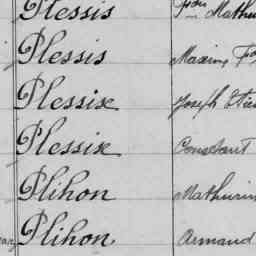 Plessis Jean Mathu
Plessis Maxime
Plessix Joseph
Plessix Constant
Plihon Mathurin
Plihon Armand